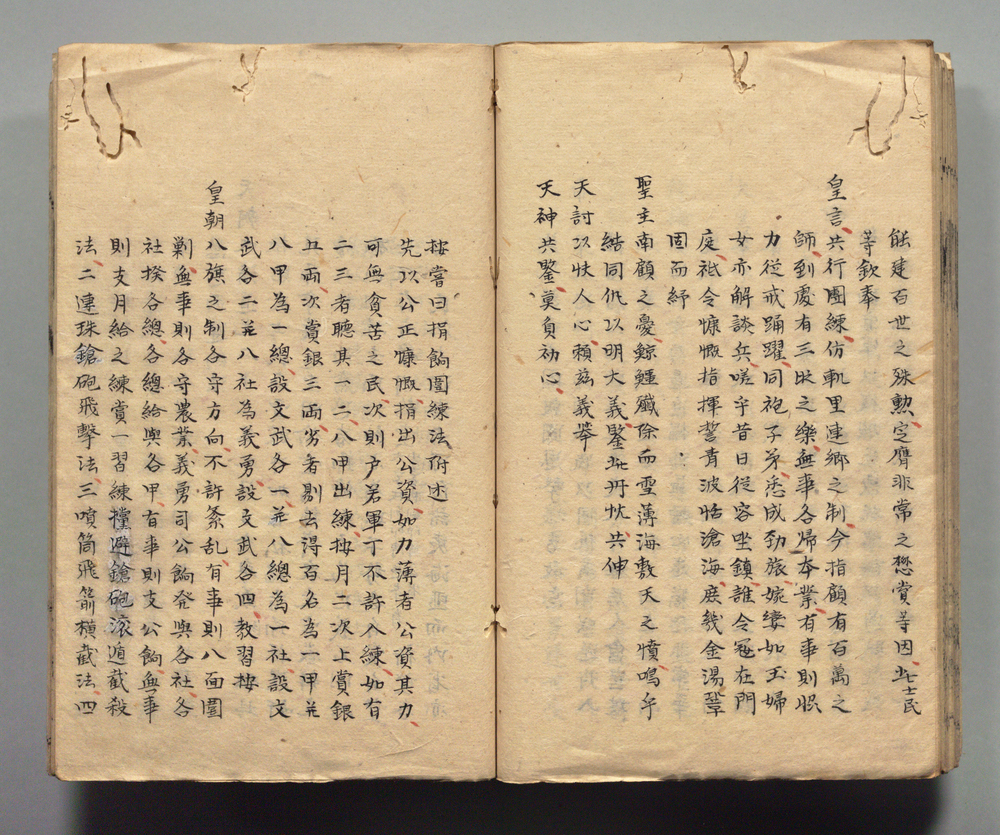 能建百世之殊勲定膺非常之懋賞等因此士民
等欽奉
皇言共行團練仿軌里連鄉之制今指顧有百萬之
師到處有三比之樂無事各歸本業有事則服
力從戒踊躍同袍子弟悉成勁旅婉孌如玉婦
女亦解談兵嗟乎昔日從容坐鎮誰令寇在門
庭祇令慷慨指揮誓青波恬滄海庶幾金湯鞏
固而紓
聖主南顧之憂鯨鱷殲除而雪薄海敷天之憤嗚乎
結同仇以明大義鑒此丹忱共伸
天討以快人心賴茲義舉
天神共鑒莫負初心
按嘗曰捐餉團練法附述
先以公正慷慨捐出公資如力薄者公資其力
可無貧苦之民次則户若軍丁不許入練如有
二三者聽其一二八甲出練按月二次上賞銀
五兩次賞銀三兩劣者剔去得百名為一甲并
八甲為一總設文武各一并八總為一社設文
武各二并八社為義勇設文武各四教習按
皇朝八旗之制各守方向不許紊乱有事則八面圍
剿無事則各守農業義勇司公餉発與各社各
社撥各總各總給與各甲有事則支公餉無事
則支月給之練賞一習練擋避鎗砲滾道截殺
法二連珠鎗砲飛擊法三噴筒飛箭橫截法四